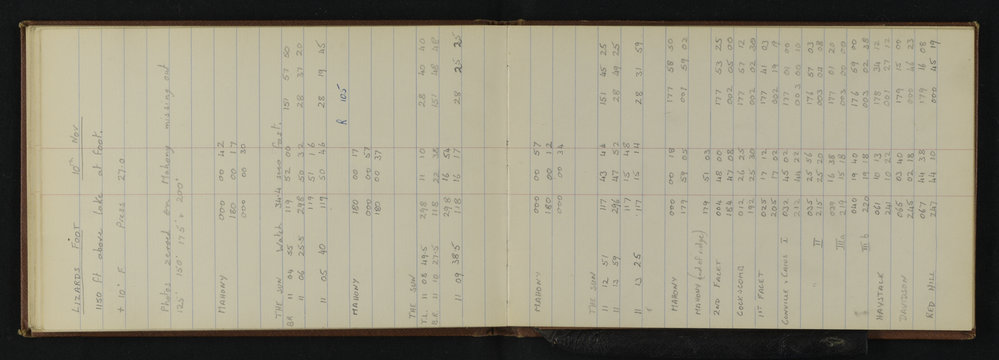 LIZARDS FOOT 10th Nov.
1150 ft above lake at foot.
+ 10° F Press 27.0
Photos zeroed on Mahony missing out
125° 150° 175° + 200°
MAHONY 000 00 42
180 00 17
000 00 30
THE SUN Watch 34.4 secs fast.
B.R. 11 04 55 119 52 00 151 57 50
11 06 25.5 298 50 32 28 37 20
119 51 16
11 05 40 119 50 46 28 19 45
R 105
MAHONY 180 00 17
000 00 57
180 00 37
THE SUN
T.L. 11 08 49.5 298 11 10 28 40 40
B.R. 11 10 27.5 118 22 38 151 48 48
298 16 54
11 09 38.5 118 16 17 28 25 25
MAHONY 000 00 57
180 00 12
000 00 34
THE SUN
11 12 51 117 43 44 151 45 25
11 13 59 296 47 52 28 49 25
117 15 48
11 13 25 117 15 14 28 31 59
MAHONY 000 00 18 177 58 50
179 59 05 001 59 02
MAHONY (end of ridge) 179 51 03
2ND FACET 004 48 00 177 53 25
184 47 08 002 05 00
COCKSCOMB 012 26 25 177 57 12
192 25 30 002 02 30
1ST FACET 025 17 12 177 41 03
205 17 02 002 19 19
I 032 45 02 177 01 00
212 44 22 003 00 10
II 035 25 56 176 57 03
215 25 20 003 04 08
IIIa 039 16 38 177 01 20
219 15 18 003 00 00
IIIb 040 19 40 176 59 00
220 19 18 003 02 38
HAYSTACK 061 10 13 178 34 12
241 10 22 001 27 12
DAVIDSON 065 03 40 179 15 00
245 02 18 000 46 23
RED HILL 067 44 38 179 16 08
247 44 10 000 45 19